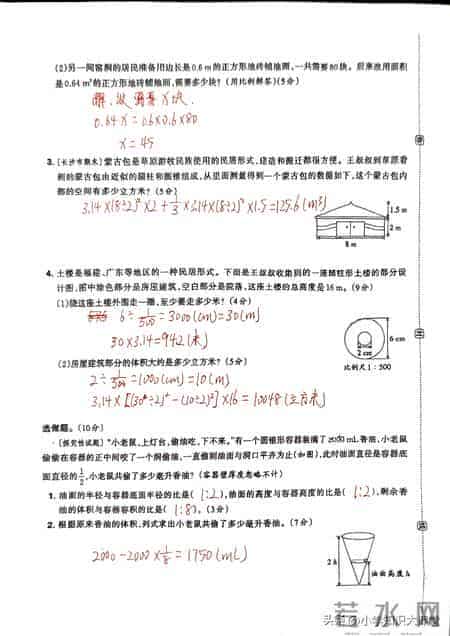 (2)另一间窑洞的居民准备用边长是0.6 m的正方形地砖铺地面,一共需要80块。后来改用面积
是0.64 m²的正方形地砖铺地面,需要多少块?(用比例解答)(5分)
解:设需要x块.
0.64x=0.6×0.6×80
x=45
3.(长沙市期末)蒙古包是草原游牧民族使用的民居形式,建造和搬迁都很方便。王叔叔到草原看
到的蒙古包由近似的圆柱和圆锥组成,从里面测量得到一个蒙古包的数据如下,这个蒙古包内
部的空间有多少立方米?(5分)
3.14×(8÷2)²×2+1/3×3.14×(8÷2)²×1.5=125.6(m³)
1.5 m
2 m
8 m
4.土楼是福建、广东等地区的一种民居形式。下面是王叔叔收集到的一座圆柱形土楼的部分设
计图,图中涂色部分是房屋建筑,空白部分是院落,这座土楼的总高度是16 m。(9分)
(1)绕这座土楼外围走一圈,至少要走多少米?(4分)
6÷1/500=3000(cm)=30(m)
30×3.14=94.2(米)
2 cm
6 cm
比例尺1:500
(2)房屋建筑部分的体积大约是多少立方米?(5分)
2÷1/500=1000(cm)=10(m)
3.14×[(30÷2)²-(10÷2)²]×16=10048(立方米)
选做题。(10分)
(探究性试题)“小老鼠,上灯台,偷油吃,下不来。”有一个圆锥形容器装满了2000 mL香油,小老鼠
偷偷在容器的正中间咬了一个洞偷油,一直偷到油面与洞口平齐为止(如图),此时油面直径是容器底
面直径的1/2,小老鼠共偷了多少毫升香油?(容器壁厚度忽略不计)
1.油面的半径与容器底面半径的比是(1:2),油面的高度与容器高度的比是(1:2),剩余香
油的体积与容器容积的比是(1:8)。(3分)
2.根据原来香油的体积,列式求出小老鼠共偷了多少毫升香油。(7分)
2000-2000×1/8=1750(mL)
2h
油面高度h
头条@小学知识大课堂
若水网